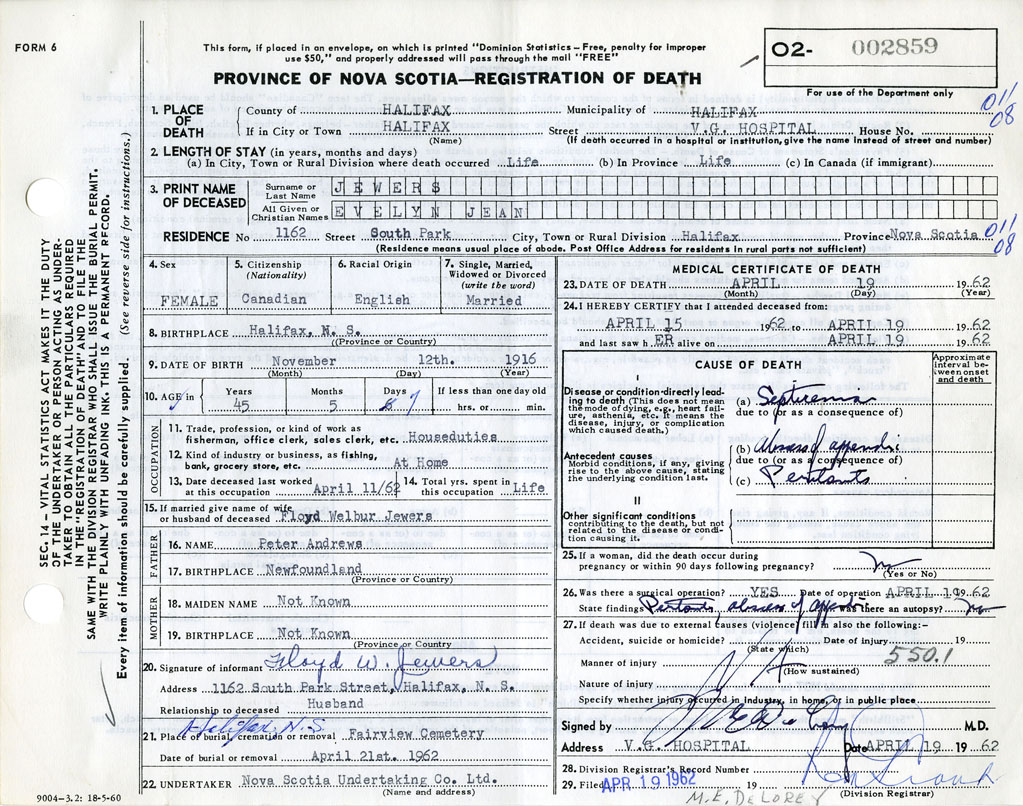 FORM 6
This form, if placed in an envelope, on which is printed "Dominion Statistics – Free, penalty for improper
use $50," and properly addressed will pass through the mail "FREE"
PROVINCE OF NOVA SCOTIA—REGISTRATION OF DEATH
O2- 002859
For use of the Department only
011
08
1. PLACE OF DEATH
County of HALIFAX Municipality of HALIFAX
If in City or Town HALIFAX Street V.G. HOSPITAL House No.
(Name) (If death occurred in a hospital or institution, give the name instead of street and number)
2. LENGTH OF STAY (in years, months and days)
(a) In City, Town or Rural Division where death occurred Life (b) In Province Life (c) In Canada (if immigrant)
3. PRINT NAME OF DECEASED
Surname or Last Name JEWERS
All Given or Christian Names EVELYN JEAN
RESIDENCE No 1162 Street South Park City, Town or Rural Division Halifax Province Nova Scotia
011
08
(Residence means usual place of abode. Post Office Address for residents in rural parts not sufficient)
4. Sex FEMALE
5. Citizenship (Nationality) Canadian
6. Racial Origin English
7. Single, Married, Widowed or Divorced (write the word) Married
8. BIRTHPLACE Halifax, N. S.
(Province or Country)
9. DATE OF BIRTH November 12th. 1916
(Month) (Day) (Year)
10. AGE in Years 45 Months 5 Days 7 If less than one day old hrs. or min.
OCCUPATION
11. Trade, profession, or kind of work as
fisherman, office clerk, sales clerk, etc. Houseduties
12. Kind of industry or business, as fishing,
bank, grocery store, etc. At Home
13. Date deceased last worked at this occupation April 11/62
14. Total yrs. spent in this occupation Life
15. If married give name of wife or husband of deceased Floyd Welbur Jewers
FATHER
16. NAME Peter Andrews
17. BIRTHPLACE Newfoundland
(Province or Country)
MOTHER
18. MAIDEN NAME Not Known
19. BIRTHPLACE Not Known
(Province or Country)
20. Signature of informant Floyd W. Jewers
Address 1162 South Park Street, Halifax, N. S.
Relationship to deceased Husband
Halifax, N.S
21. Place of burial, cremation or removal Fairview Cemetery
Date of burial or removal April 21st. 1962
22. UNDERTAKER Nova Scotia Undertaking Co. Ltd.
(Name and address)
9004-3.2: 18-5-60
MEDICAL CERTIFICATE OF DEATH
23. DATE OF DEATH APRIL 19 1962
(Month) (Day) (Year)
24. I HEREBY CERTIFY that I attended deceased from:
APRIL 15 1962 to APRIL 19 1962
and last saw h ER alive on APRIL 19 1962
CAUSE OF DEATH
Approximate interval between onset and death
I
Disease or condition directly leading to death (This does not mean the mode of dying, e.g., heart failure, asthenia, etc. It means the disease, injury, or complication which caused death.)
(a) Septicema
due to (or as a consequence of)
Antecedent causes
Morbid conditions, if any, giving rise to the above cause, stating the underlying condition last.
(b) Abscess of appendix
due to (or as a consequence of)
(c) Peritonitis
II
Other significant conditions
contributing to the death, but not related to the disease or condition causing it.
25. If a woman, did the death occur during
pregnancy or within 90 days following pregnancy? No
(Yes or No)
26. Was there a surgical operation? YES Date of operation APRIL 19 1962
State findings abscess of appendix Was there an autopsy? no
27. If death was due to external causes (violence) fill in also the following:–
Accident, suicide or homicide? Date of injury 19
(State which)
550.1
Manner of injury N A
(How sustained)
Nature of injury
Specify whether injury occurred in industry, in home, or in public place
Signed by M.D.
Address V.G. HOSPITAL Date APRIL 19 1962
28. Division Registrar's Record Number
29. Filed APR 19 1962
(Division Registrar)
M.E. DeLOREY
SEC. 14 – VITAL STATISTICS ACT MAKES IT THE DUTY
OF THE UNDERTAKER OR PERSON ACTING AS UNDER-
TAKER TO OBTAIN ALL THE PARTICULARS REQUIRED
IN THE "REGISTRATION OF DEATH" AND TO FILE THE
SAME WITH THE DIVISION REGISTRAR WHO SHALL ISSUE THE BURIAL PERMIT.
WRITE PLAINLY WITH UNFADING INK. THIS IS A PERMANENT RECORD.
Every item of information should be carefully supplied. (See reverse side for instructions.)